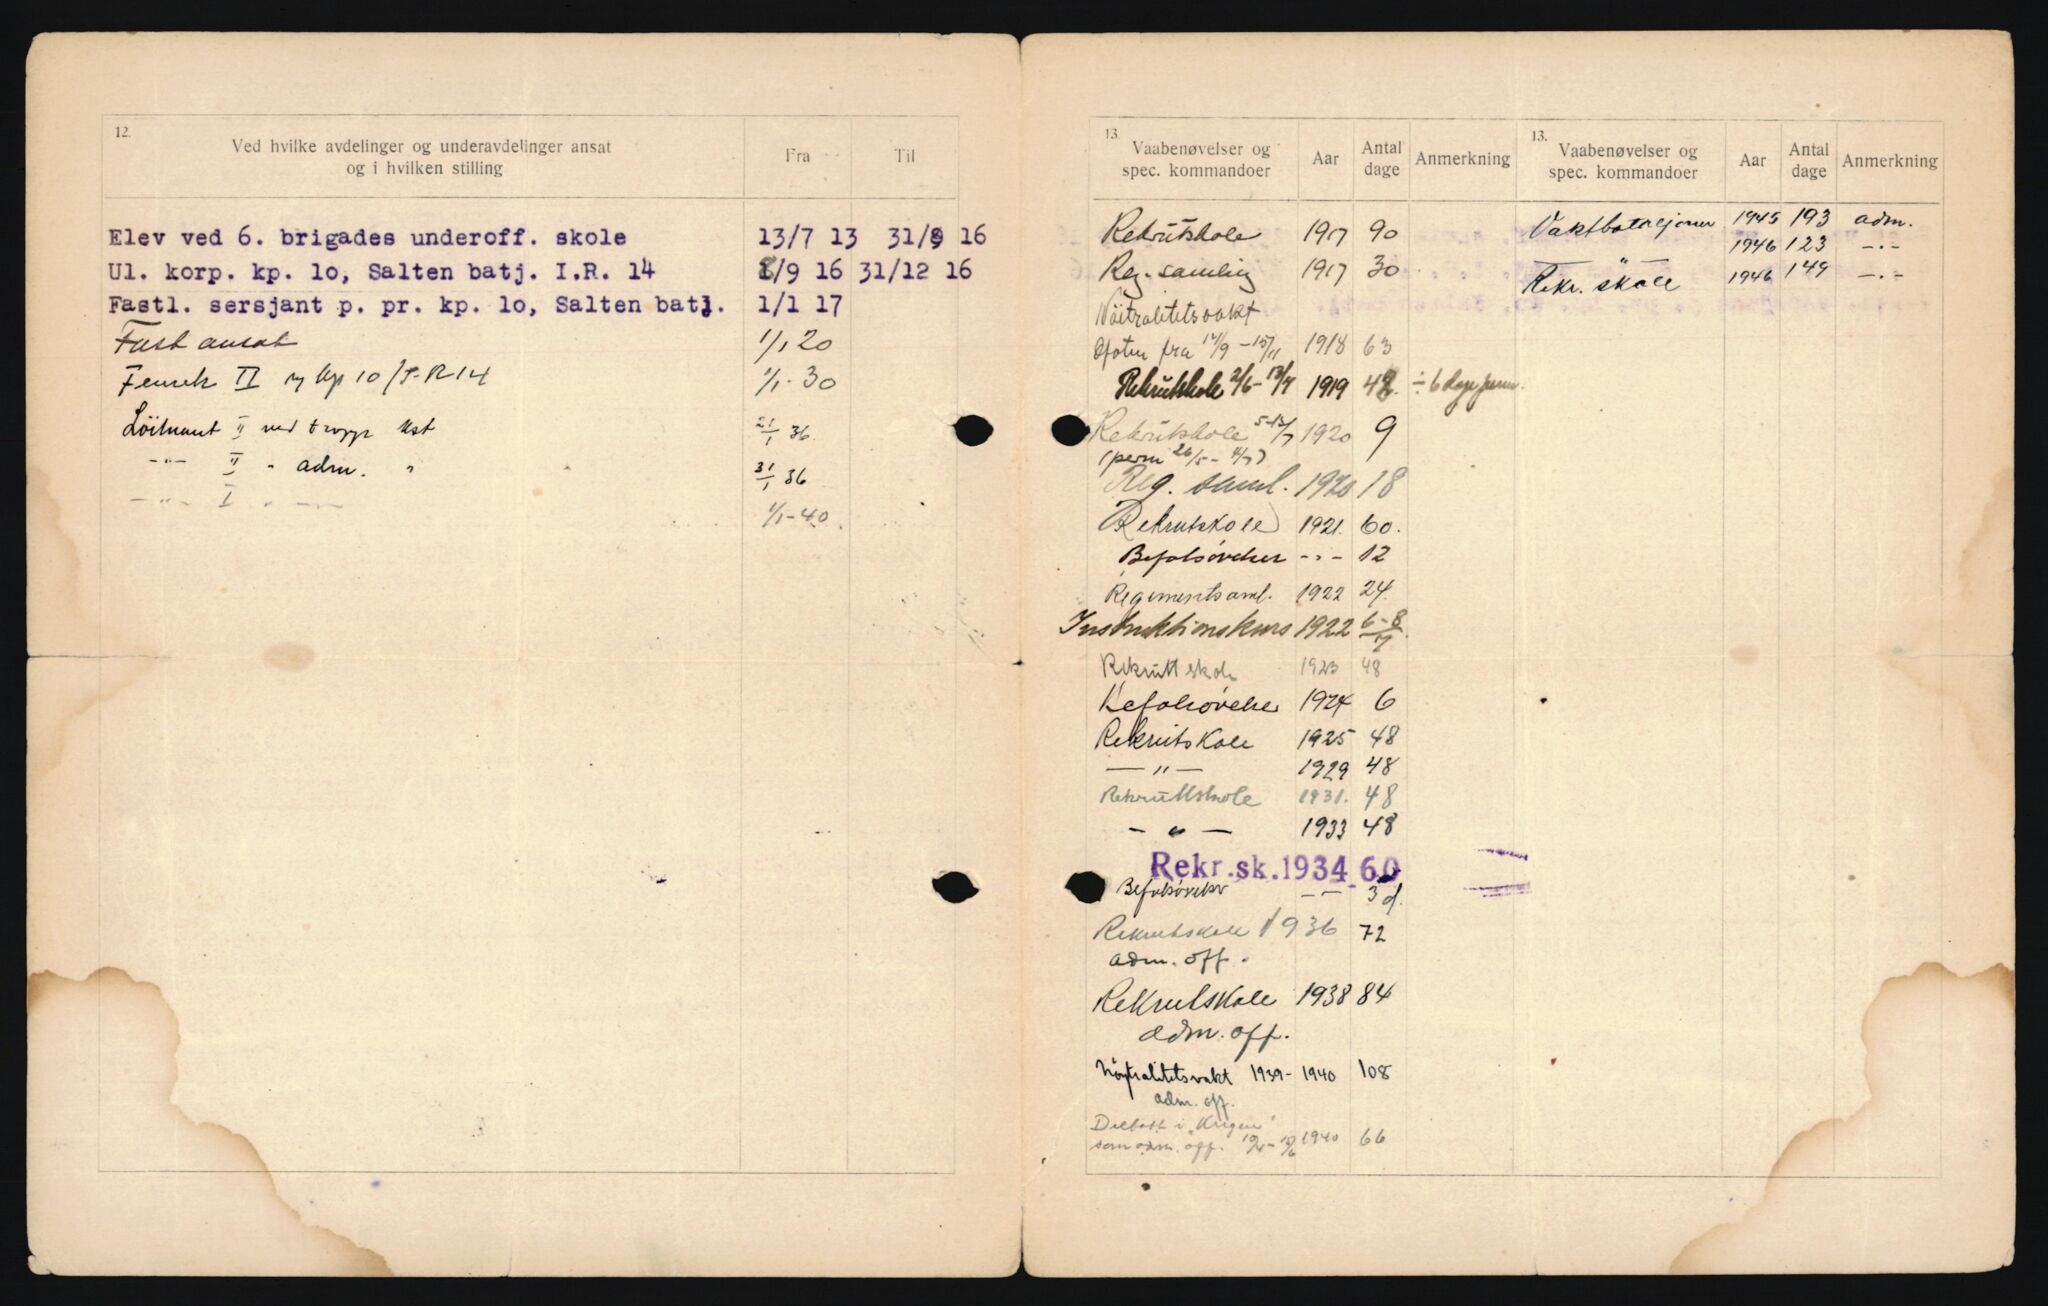 12.
Ved hvilke avdelinger og underavdelinger ansat
og i hvilken stilling
Fra
Til
Elev ved 6. brigades underoff. skole 13/7 13 31/8 16
Ul. korp. kp. lo, Salten batj. I.R. 14 1/9 16 31/12 16
Fastl. sersjant p. pr. kp. lo, Salten batj. 1/1 17
Fast ansat 1/1 20
Fenrik II Kp 10 / I.R 14 1/1-30
Löitnant II ved tropp kst 21/1 36.
-"- II " adm. " 31/1 36
-"- I " -"- 1/1-40.
13.
Vaabenøvelser og
spec. kommandoer
Aar
Antal
dage
Anmerkning
Rekrutskole 1917 90
Reg.samling 1917 30
Nöitralitetsvakt
Ofoten fra 14/9 - 15/11 1918 63
Rekrutskole 2/6 - 13/7 1919 42 ÷ 6 dage perm.
Rekrutskole 5-13/7 1920 9
(perm 26/5 - 4/7)
Reg. saml. 1920 18
Rekrutskole 1921. 60.
Befalsøvelser -"- 12
Regimentsaml. 1922 24.
Instruktionskurs 1922 6-8/7.
Rekruttskole 1923 48
Befalsøvelse 1924 6
Rekrutskole 1925 48
-"- 1929 48
Rekruttskole 1931. 48
-"- 1933 48
Rekr.sk.1934 60
Befalsøvelse -"- 3 d.
Rekrutskole 1936 72
adm. off.
Rekrutskole 1938 84
adm. off.
Nöytralitetsvakt 1939- 1940 108
adm. off.
Deltatt i "Krigen"
som adm. off. 10/4 - 10/6 1940 66
13.
Vaabenøvelser og
spec. kommandoer
Aar
Antal
dage
Anmerkning
Vaktbataljoner 1945 193 adm.
" 1946 123 -"-
Rekr. skole 1946 149 -"-